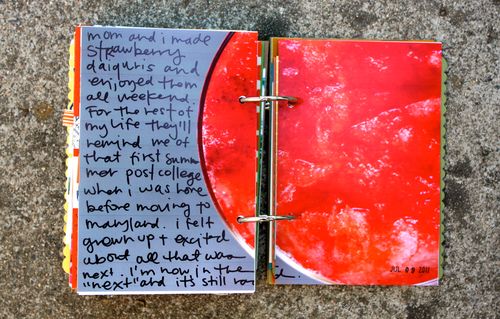 mom and i made
strawberry
daiquris and
enjoyed them
all weekend.
For the rest of
my life they'll
remind me of
that first summer
post college
when i was home
before moving to
maryland. i felt
grown up + excited
about all that was
next. I'm now in the
"next" and it's still
JUL 09 2011